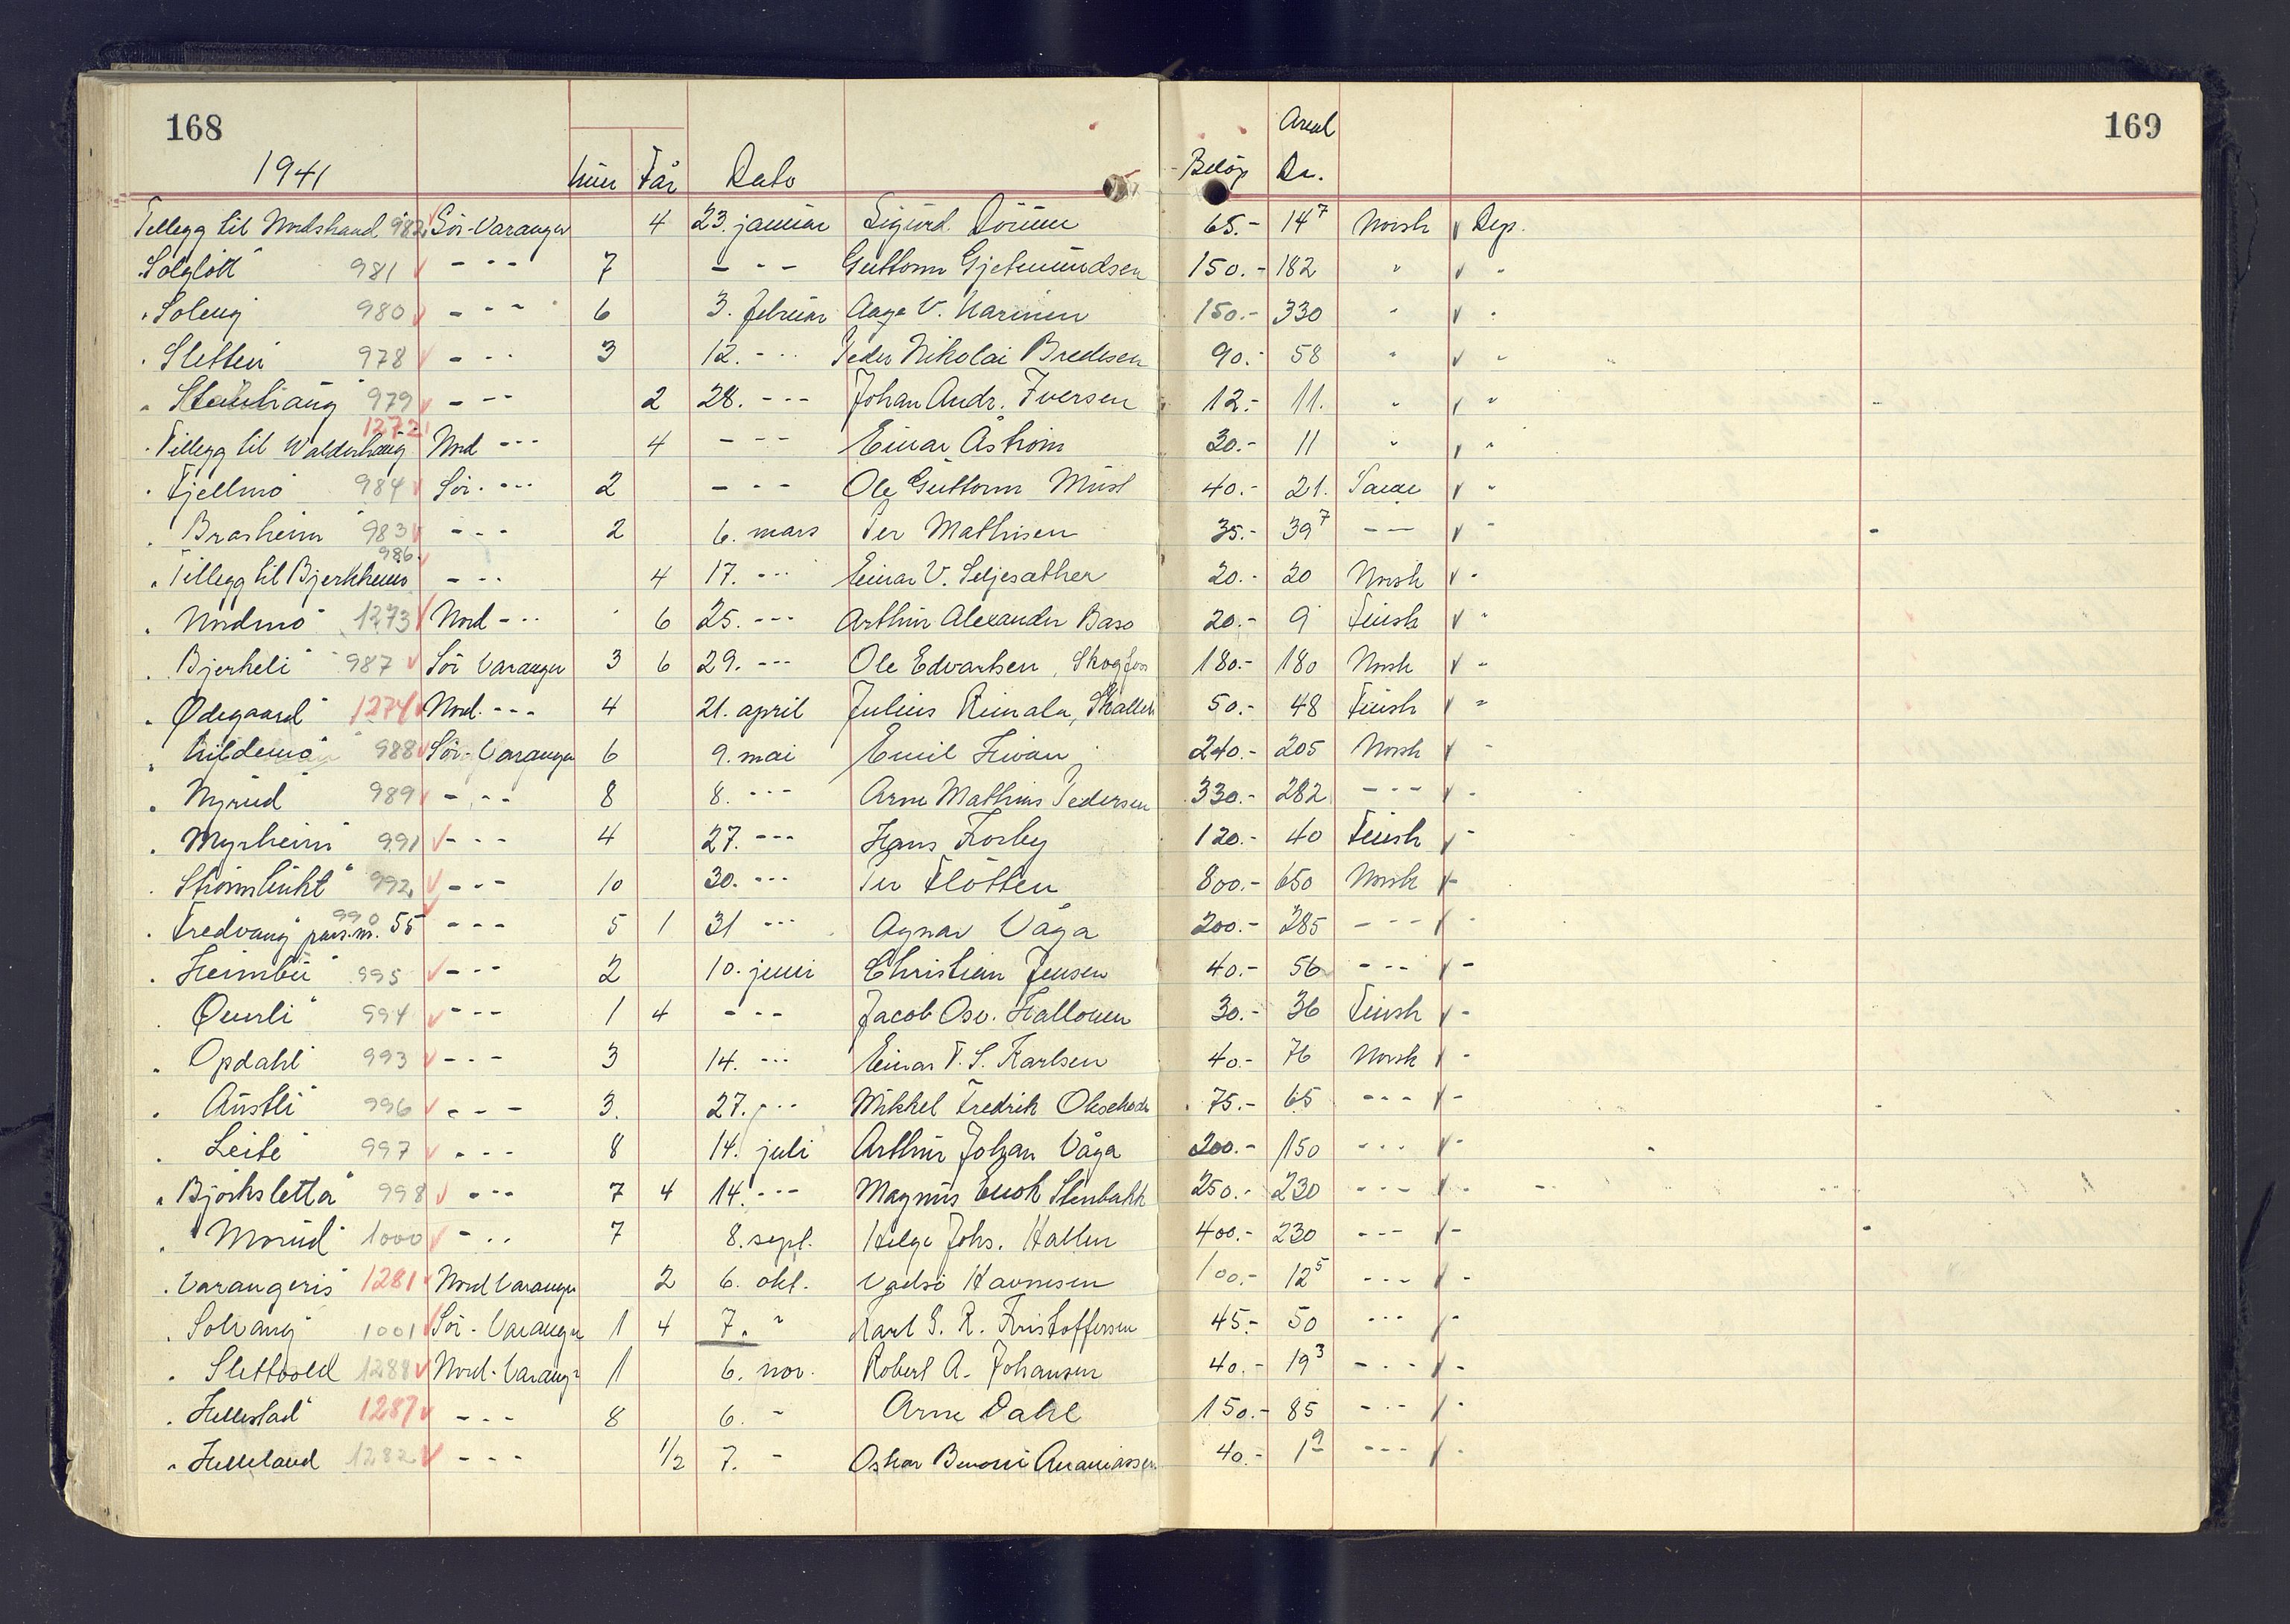 168 169
Areal
1941 Dato Beløp Da.
Tillegg til Nordstrand 982 Sör-Varanger 4 23. januar Sigurd 65.- 14⁷ Norsk v Dep.
"Solglött" 981 v - - - 7 - - - Guttorm Gjetmundsen 150.- 182 " v "
"Soleng 980 v - - - 6 3. februar Aage V. Karinen 150.- 330 " v "
"Sletten 978 v - - - 3 12. - - - Peder Nikolai Bredesen 90.- 58 " v "
979 v - - - 2 28. - - - Johan Andr. Iversen 12.- 11. " v "
1272
"Tillegg til Walderhaug Nord - - - 4 - - - Einar Åström 30.- 11 " v "
"Fjellmo" 984 v Sör. - - - 2 - - - Ole Guttorm 40.- 21. v "
"Brasheim" 983 v - - - 2 6. mars Per Mathisen 35.- 39⁷ - - v "
986
"Tillegg til Bjerkhemo v - - - 4 17. - - - Einar V. Seljesæther 20.- 20 Norsk v "
"Nordmo" 1273 v Nord - - - 6 25. - - - Arthur Alexander Baso 20.- 9 Finsk v "
"Bjerkeli" 987 v Sör Varanger 3 6 29. - - - Ole Edvartsen, Skogfoss 180.- 180 Norsk v "
"Ødegaard" 1274 v Nord. - - - 4 21. april Julius Rimala, 50.- 48 Finsk v "
988 v Sör-Varanger 6 9. mai Emil 240.- 205 Norsk v "
"Nyrud" 989 v - - - 8 8. - - - Arne Mathius Pedersen 330.- 282 - - - v "
"Myrheim" 991 v - - - 4 27. - - - Hans Korby 120.- 40 Finsk v "
"Strömbukt" 992 v - - - 10 30. - - - Per Flötten 800.- 650 Norsk v -
990
"Fredvang" pars.nr. 55 v - - - 5 1 31 - - - Agnar Våga 200.- 285 - - - v "
"Heimbu" 995 v - - - 2 10. juni Christian Jensen 40.- 56 - - - v -
"Øverli" 994 v - - - 1 4 - - - Jacob Osv. Hallonen 30.- 36 Finsk v -
"Opdahl" 993 v - - - 3 14. - - - Einar F. S. Karlsen 40.- 76 Norsk v -
"Austli" 996 v - - - 3. 27. - - - Mikkel Fredrik 75.- 65 - - - v -
"Leite" 997 v - - - 8 14. juli Arthur Johan Våga 200.- 150 - - - v -
"Björksletta" 998 v - - - 7 4 14. - - - Magnus Enok Stenbakk 250.- 230 - - - v -
"Morud" 1000 v - - - 7 8. sept. Helge Johs. Hallen 400.- 230 - - - v -
"Varangeris" 1281 v Nord Varanger 2 6. okt. Vadsö Havnesen 100.- 12⁵ - - - v -
"Solvang" 1001 v Sör-Varanger 1 4 7. " Karl G. R. Kristoffersen 45.- 50 - - - v -
"Slettvold 1288 v Nord-Varang" 1 6. nov. Robert A. Johansen 40.- 19³ - - - v -
"Hellestad" 1287 v - - - 8 6. - Arne Dahl 150.- 85 - - - v -
"Helleland 1282 v - - - 1/2 7. - Oskar Benoni Ananiassen 40.- 1⁹ - - - v -